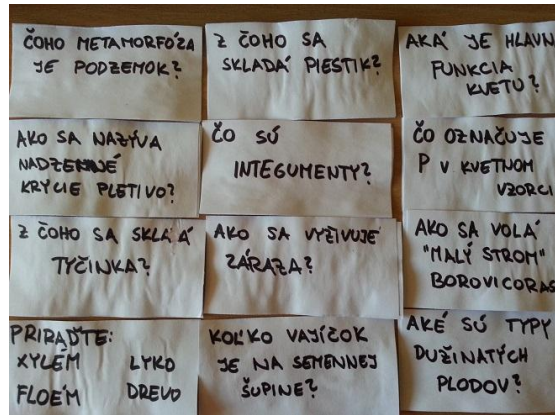 ČOHO METAMORFÓZA
JE PODZEMOK?
Z ČOHO SA
SKLADÁ PIESTIK?
AKÁ JE HLAVN
FUNKCIA
KVETU?
AKO SA NAZÝVA
NADZEMNÉ
KRYCIE PLETIVO?
ČO SÚ
INTEGUMENTY?
ČO OZNAČUJE
P V KVETNOM
VZORCI
Z ČOHO SA SKLADÁ
TYČINKA?
AKO SA VYŽIVUJE
ZÁRAZA?
AKO SA VOLÁ
"MALÝ STROM"
BOROVICORAS
PRIRAĎTE:
XYLÉM LYKO
FLOÉM DREVO
KOĽKO VAJÍČOK
JE NA SEMENNEJ
ŠUPINE?
AKÉ SÚ TYPY
DUŽINATÝCH
PLODOV?